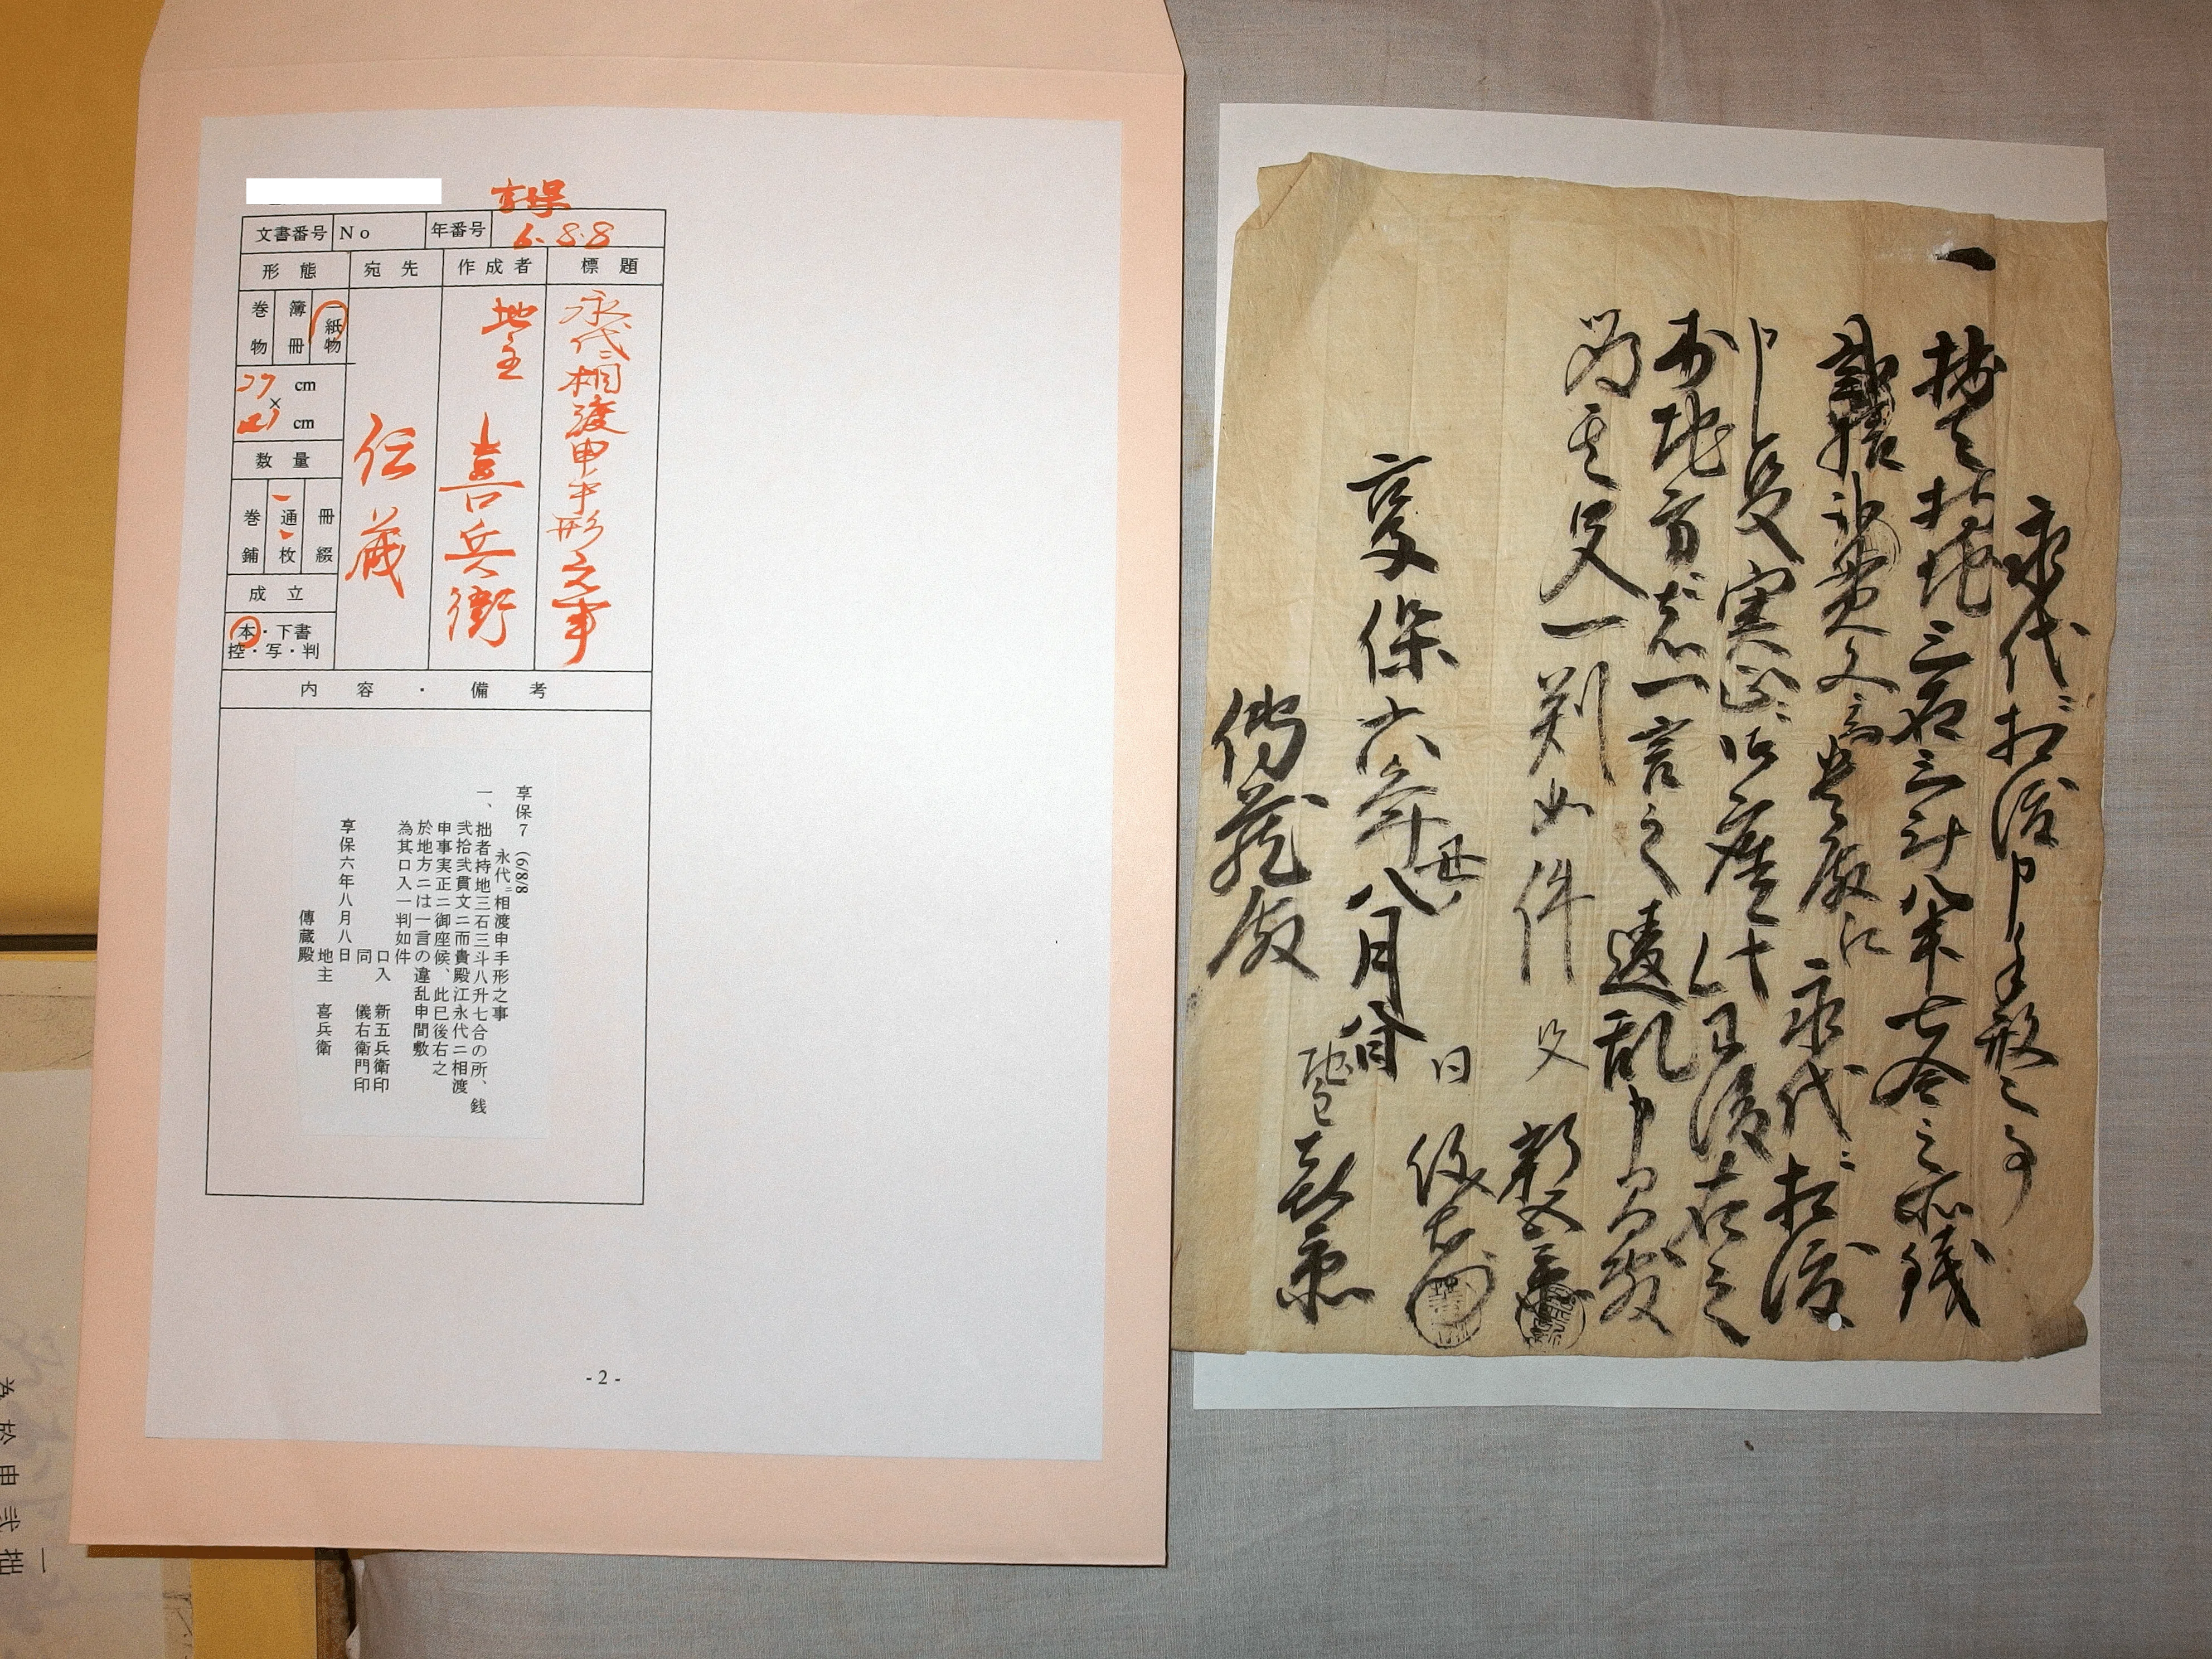 享保
文書番号 No 年番号 6.8.8
形態 宛先 作成者 標題
巻物 簿冊 一紙物
27 cm
×
21 cm
数量
巻舗 一通枚 冊綴
成立
本・下書
控・写・判
伝蔵
地主 喜兵衛
永代ニ相渡申手形之事
内容・備考
享保7 (6/8/8
永代ニ相渡申手形之事
一、拙者持地三石三斗八升七合の所、銭
弐拾弐貫文ニ而貴殿江永代ニ相渡
申事実正ニ御座候、此巳後右之
於地方ニは一言の違乱申間敷
為其口入一判如件
口入 新五兵衛印
同 儀右衛門印
享保六年八月八日
地主 喜兵衛
傳蔵殿
- 2 -
永代ニ相渡申手形之事
一 拙者持地三石三斗八升七合之所銭
弐拾弐貫文ニ而貴殿江永代ニ相渡
申実正ニ御座候
於地方ニは一言之違乱申間敷
如件
新五兵衛
儀右衛門
享保六年
八月八日
地主 喜兵衛
傳蔵殿